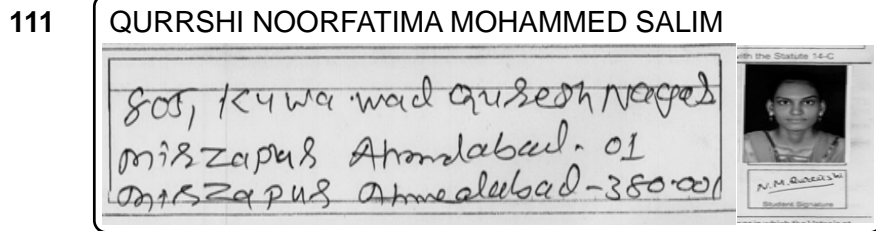 111 QURRSHI NOORFATIMA MOHAMMED SALIM
805, Kuwa wad Quresh Nagar
mirzapur Ahmdabad. 01
mirzapur Ahmedabad-380.001
with the Statute 14-C
N.M.Qureshi
Student Signature